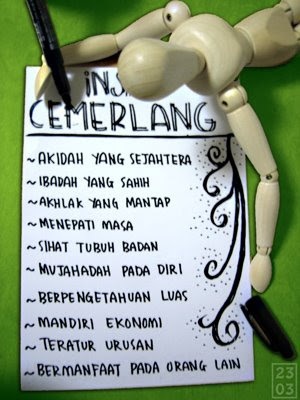 CEMERLANG
~AKIDAH YANG SEJAHTERA
~IBADAH YANG SAHIH
~AKHLAK YANG MANTAP
~MENEPATI MASA
~SIHAT TUBUH BADAN
~MUJAHADAH PADA DIRI
~BERPENGETAHUAN LUAS
~MANDIRI EKONOMI
~TERATUR URUSAN
~BERMANFAAT PADA ORANG LAIN
23
03